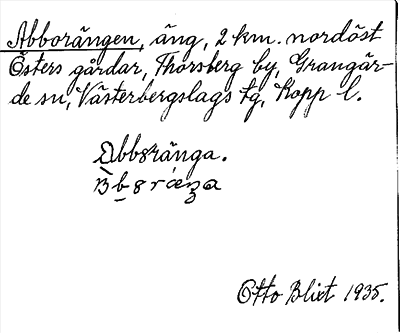 Abborängen, äng, 2 km. nordöst
Östers gårdar, Thorsberg by, Grangär-
de sn, Västerbergslags tg, Kopp l.
Abboränga.
Otto Blixt 1935.